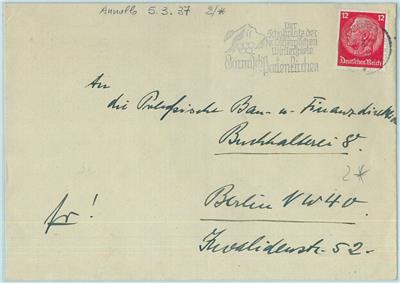 Aunello 5.3.37 2/*
Der
Schauplatz der
IV. olympischen
Winterspiele
Garmisch
Partenkirchen
12 12
Deutsches Reich
An
die Preußische Bau- u- Finanzdirektion
Buchhalterei 8.
2*
Berlin NW40.
fr!
Invalidenstr. 52-